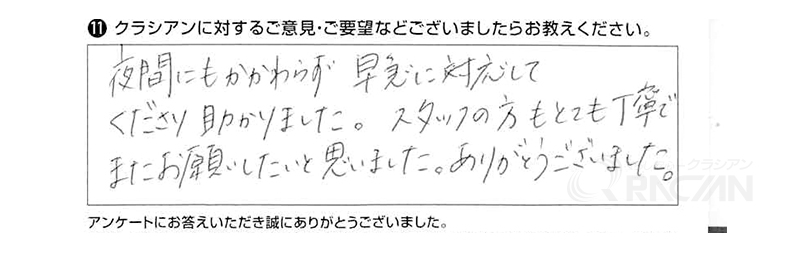 ⑪ クラシアンに対するご意見・ご要望などございましたらお教えください。
夜間にもかかわらず 早急に対応して
くださり助かりました。スタッフの方もとても丁寧で
またお願いしたいと思いました。ありがとうございました。
クラシアン
QRACIAN
アンケートにお答えいただき誠にありがとうございました。